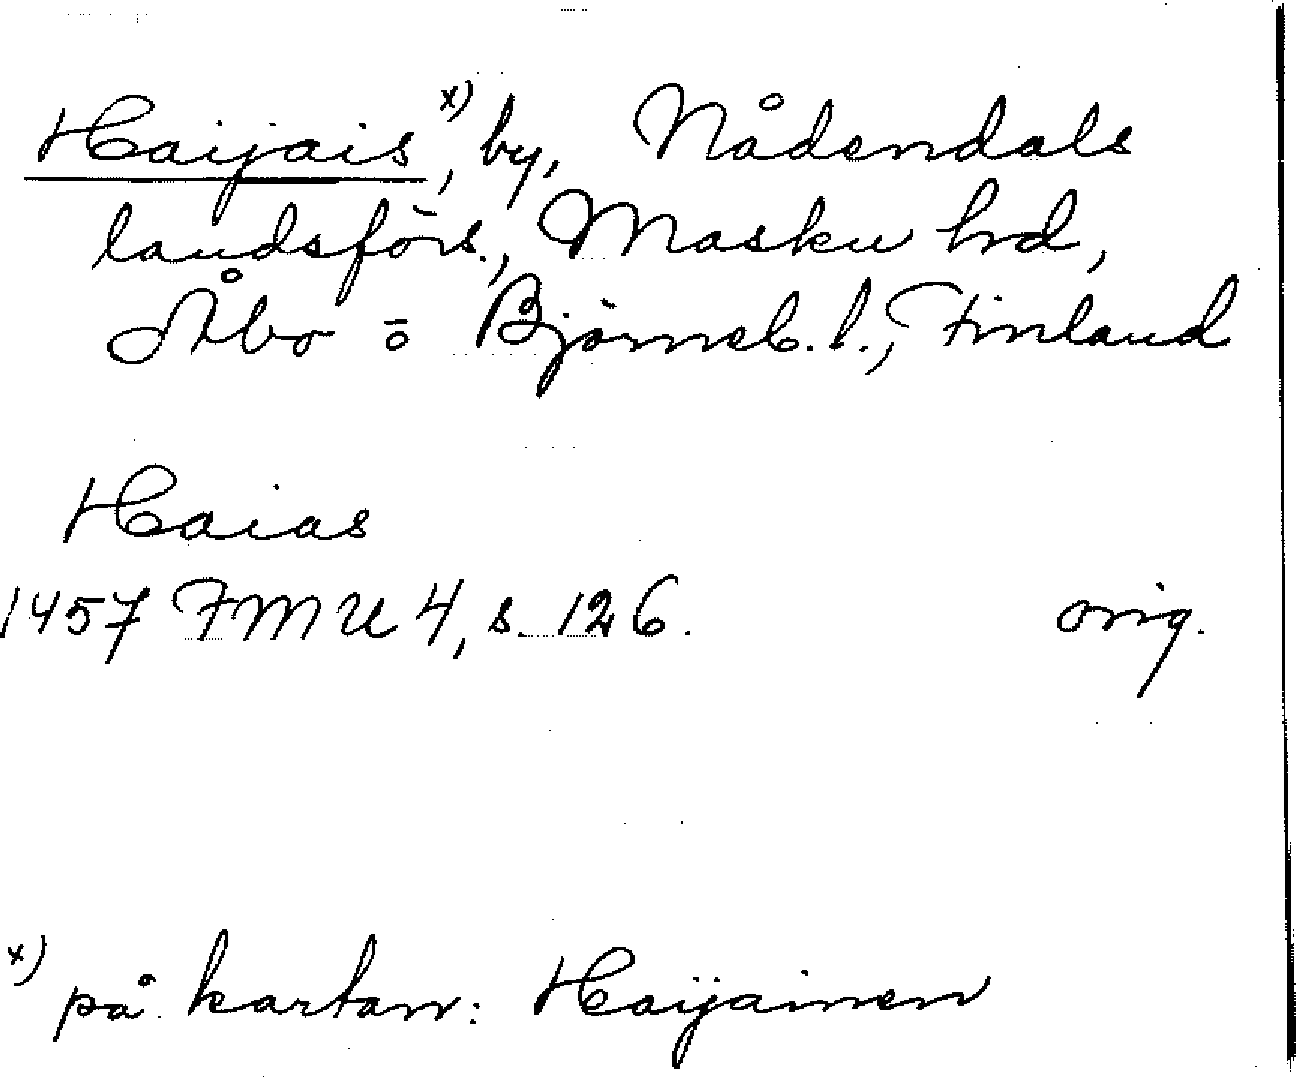 Haijais x), by, Nådendals
landsförs., Masku hd,
Åbo o Björneb. l., Finland
Haias
1457 FMU 4, s. 126. orig.
x) på kartan: Haijainen